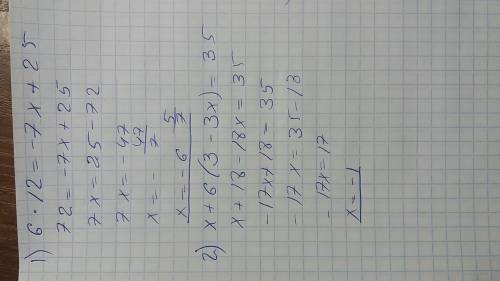 1) 6 · 12 = -7x + 25
72 = -7x + 25
7x = 25 - 72
7x = -47
x = - 47/7
x = -6 5/7
2) x + 6(3 - 3x) = 35
x + 18 - 18x = 35
-17x + 18 = 35
-17x = 35 - 18
-17x = 17
x = -1